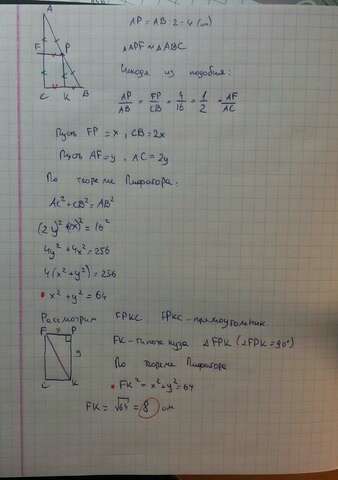 A
F
P
C
K
B
AP = AB : 2 = 4 (см)
△APF ∾ △ABC
Исходя из подобия:
AP/AB = FP/CB = 4/16 = 1/2 = AF/AC
Пусть FP = x, CB = 2x
Пусть AF = y, AC = 2y
По теореме Пифагора:
AC² + CB² = AB²
(2y)² + (x)² = 16²
4y² + 4x² = 256
4(x² + y²) = 256
x² + y² = 64
Рассмотрим FPKC FPKC - прямоугольник
F x P
y
C K
FK - гипотенуза △FPK (∠FPK = 90°)
По теореме Пифагора
FK² = x² + y² = 64
FK = √64 = 8 см